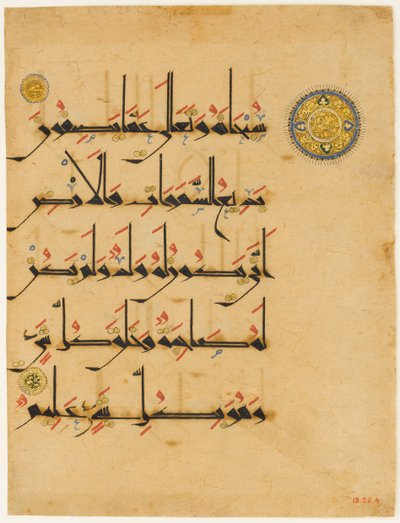 سبحانه وتعالى عما يصفون
بديع السموات والارض
انى يكون له ولد ولم تكن
له صاحبة وخلق كل شى
وهو بكل شى عليم
18.26.4